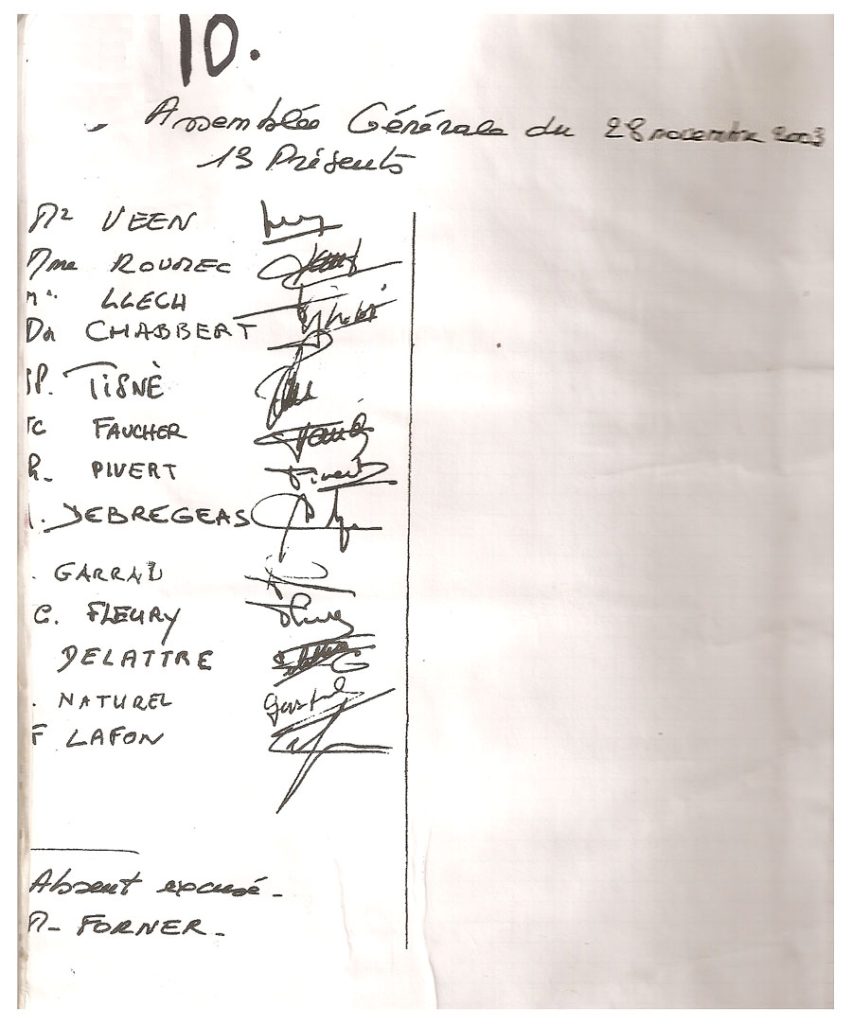 10.
Assemblée Générale du 28 novembre 2003
13 Présents
Mr VEEN
Mme ROUMEC
Mr. LLECH
Dr CHABBERT
JP. TISNÈ
FAUCHER
R. PIVERT
DEBREGEAS
. GARRAU
C. FLEURY
DELATTRE
. NATUREL
F LAFON
Absent excusé.
M. FORNER.